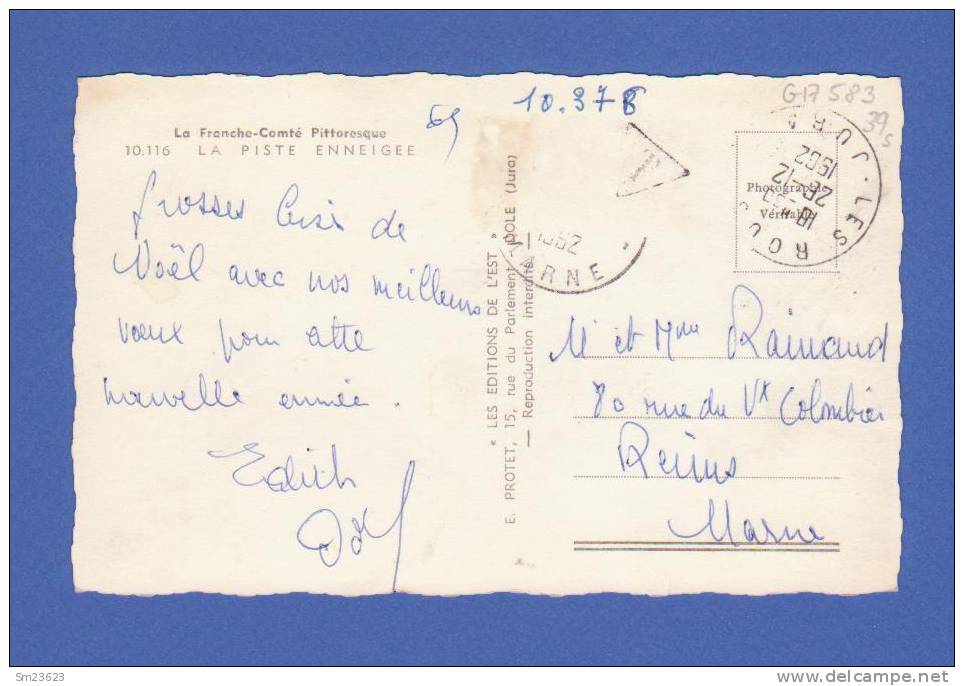 10.378
G17583
39s
69
La Franche-Comté Pittoresque
10.116 LA PISTE ENNEIGEE
grosses bises de
Noël avec nos meilleurs
vœux pour cette
nouvelle année.
Edith
« LES EDITIONS DE L'EST »
E. PROTET, 15, rue du Parlement DOLE (Jura)
— Reproduction interdite —
T
1962
MARNE
Photographie
Véritable
LES ROUS
JURA
18
26-12
1962
M et Mme Raimond
80 rue du Vx Colombier
Reims
Marne
Sm23623
delcampe.net